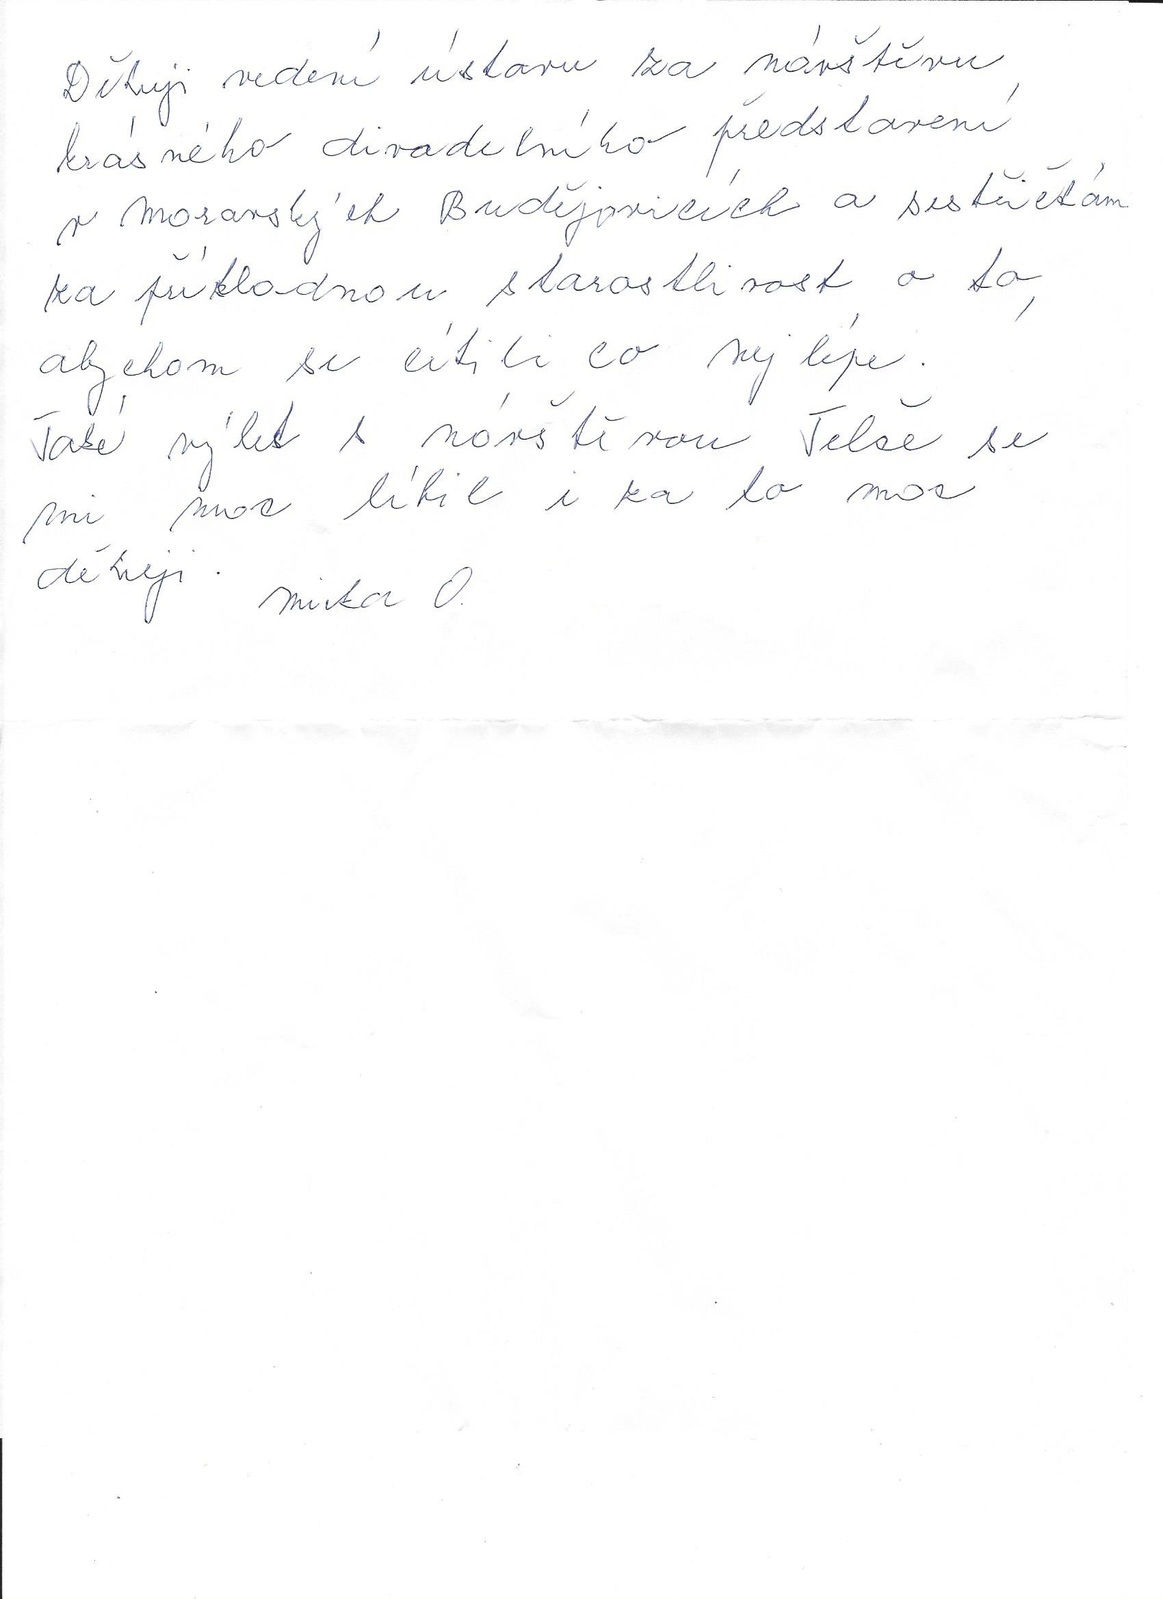 Děkuji vedení ústavu za návštěvu
krásného divadelního představení
v Moravských Budějovicích a sestřičkám
za příkladnou starostlivost o to,
abychom se cítili co nejlépe.
Také výlet s návštěvou Telče se
mi moc líbil i za to moc
děkuji.
Mirka O.